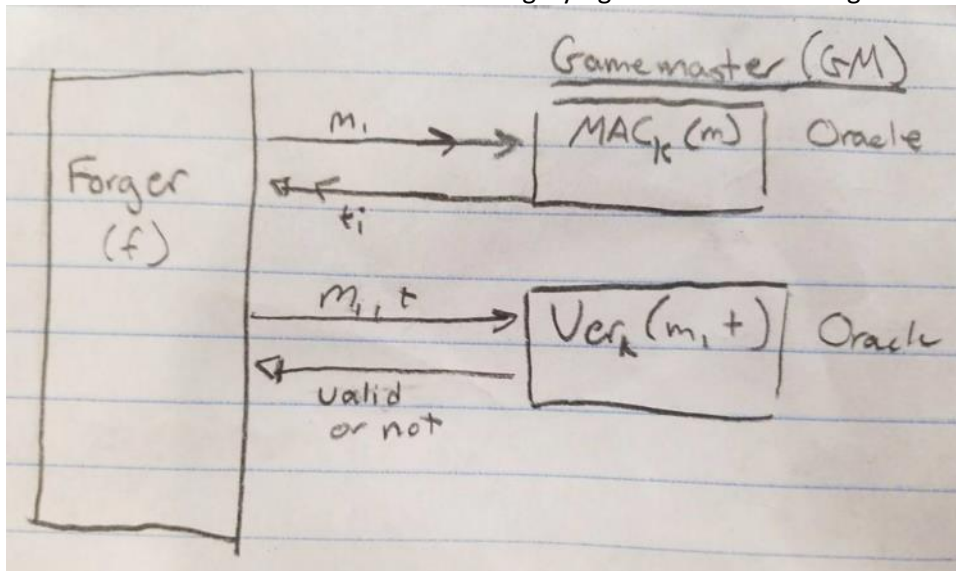 Gamemaster (GM)
Forger
(f)
mᵢ
MACₖ(m)
Oracle
tᵢ
mᵢ, t
Verₖ(m, t)
Oracle
valid
or not